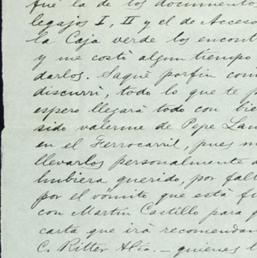 fué la de los documento
legajos I, II y el de Acceso
la Caja verde los encont
y me costó algun tiempo
darlos. Saqué por fin com
discurrí, todo lo que te p
espero llegará todo con
sido valerme de Pepe Lan
en el Ferrocarril, pues m
llevarlos personalmente
hubiera querido, por falt
por el vómito que está fu
con Martin Castillo para
carta que irá recomendan
C. Ritter Alto. – quienes l